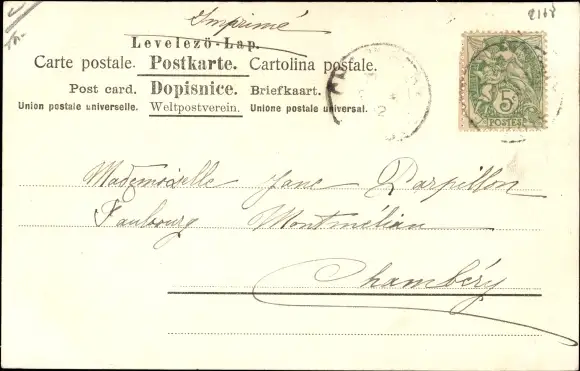 2168
Imprimé
Levelező-Lap.
Carte postale. Postkarte. Cartolina postale.
Post card. Dopisnice. Briefkaart.
Union postale universelle. Weltpostverein. Unione postale universal.
5c
POSTES
Mademoiselle Jane Parpillon
Faubourg Montmélian
Chambéry